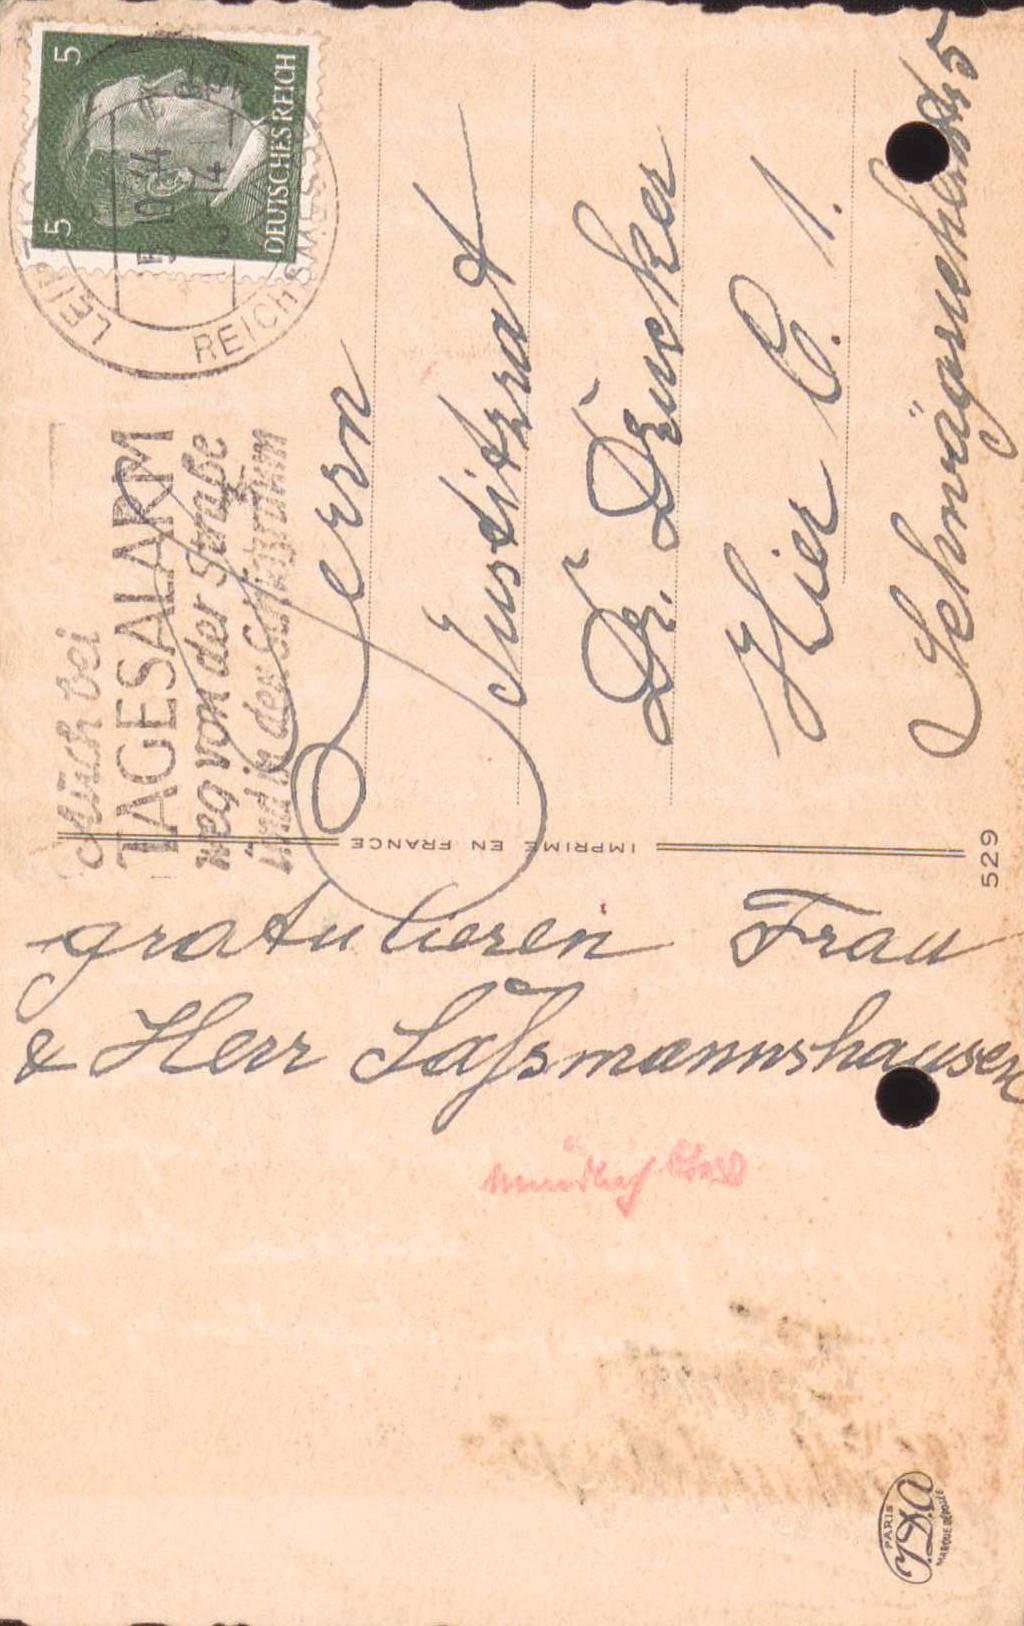 5
5
DEUTSCHES REICH
Auch bei
TAGESALARM
weg von der Straße
und in den Schutzraum
Herrn
Justizrat
Dr. Drucker
Hier C. 1.
Schwägrichenstr. 5
IMPRIME EN FRANCE
529
gratulieren Frau
& Herr Laßmannshausen
mündlich
PARIS
J.D.A
MARQUE DÉPOSÉE